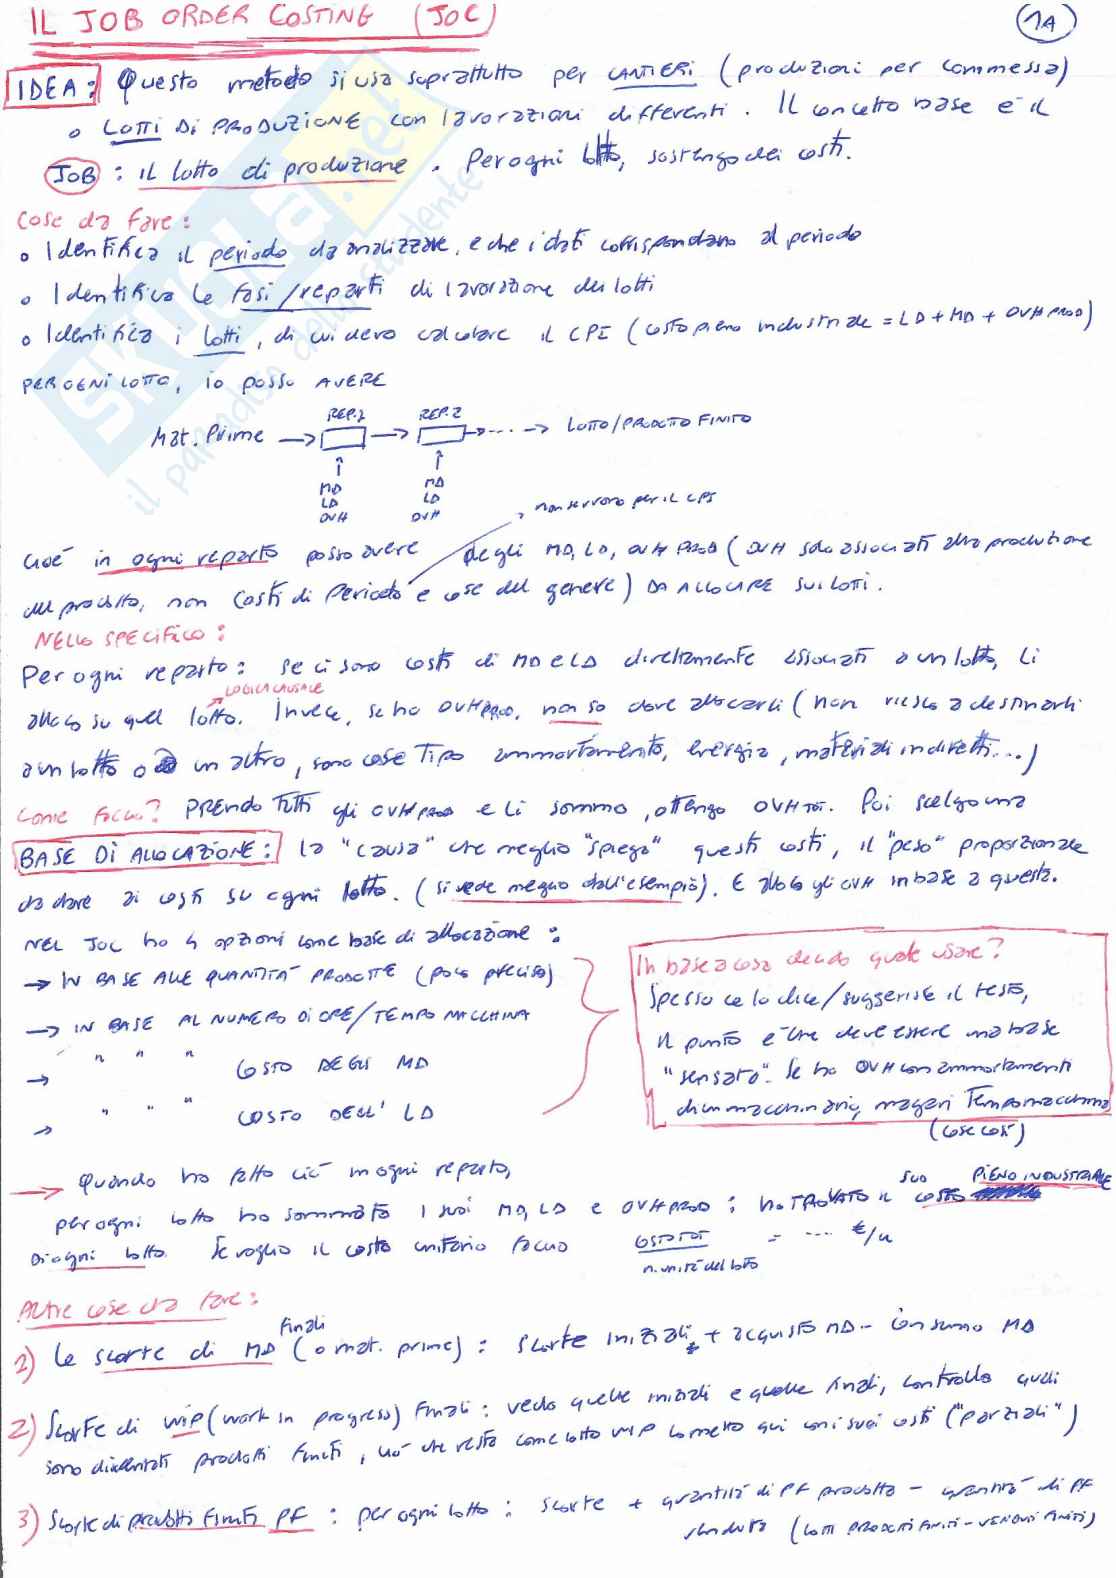 IL JOB ORDER COSTING (JOC)
1A
IDEA: Questo metodo si usa soprattutto per CANTIERI (produzioni per commessa)
o LOTTI DI PRODUZIONE con lavorazioni differenti. Il concetto base è il
JOB: il lotto di produzione. Per ogni lotto, sostengo dei costi.
Cose da fare:
o Identifica il periodo da analizzare, e che i dati corrispondano al periodo
o Identifica le fasi/reparti di lavorazione dei lotti
o Identifica i lotti, di cui devo calcolare il CPI (costo pieno industriale = LD + MD + OVH PROD)
PER OGNI LOTTO, io posso AVERE
REP.1 REP.2
Mat. Prime → → ... → LOTTO/PRODOTTO FINITO
MD MD
LD LD
OVH OVH
non servono per il CPI
cioè in ogni reparto posso avere degli MD, LD, OVH PROD (OVH solo associati alla produzione
del prodotto, non Costi di Periodo e cose del genere) DA ALLOCARE SUI LOTTI.
NELLO SPECIFICO:
Per ogni reparto: se ci sono costi di MD e LD direttamente associati a un lotto, li
LOGICA CAUSALE
alloco su quel lotto. Invece, se ho OVH PROD, non so dove allocarli (non riesco a destinarli
a un lotto o a un altro, sono cose tipo ammortamento, energia, materiali indiretti...)
Come faccio? PRENDO TUTTI gli OVH PROD e li sommo, ottengo OVH TOT. Poi scelgo una
BASE DI ALLOCAZIONE: la "causa" che meglio "spiega" questi costi, il "peso" proporzionale
da dare ai costi su ogni lotto. (si vede meglio dall'esempio). E alloco gli OVH in base a questa.
NEL JOC ho 4 opzioni come base di allocazione:
→ IN BASE ALLE QUANTITÀ PRODOTTE (poco preciso)
→ IN BASE AL NUMERO DI ORE/TEMPO MACCHINA
→ " " " COSTO DEGLI MD
→ " " " COSTO DELL' LD
In base a cosa decido quale usare?
Spesso ce lo dice/suggerisce il testo,
il punto è che deve essere una base
"sensata". Se ho OVH con ammortamenti
di un macchinario, magari Tempo macchina
(cose così)
→ Quando ho fatto ciò in ogni reparto,
per ogni lotto ho sommato i suoi MD, LD e OVH PROD: ho TROVATO il suo costo PIENO INDUSTRIALE
Di ogni lotto. Se voglio il costo unitario faccio COSTO TOT / n. unità del lotto = ... €/u
Altre cose da fare:
1) Le scorte di MD finali (o mat. prime): Scorte iniziali + acquisto MD - Consumo MD
2) Scorte di WIP (work in progress) finali: vedo quelle iniziali e quelle finali, controllo quali
sono diventati prodotti finiti, ciò che resta come lotto WIP lo metto qui con i suoi costi ("parziali")
3) Scorte di prodotti finiti PF: per ogni lotto: scorte + quantità di PF prodotta - quantità di PF
venduta (LOTTI PRODOTTI FINITI - VENDUTI FINITI)
SKUOLA.net
il paradiso dello studente